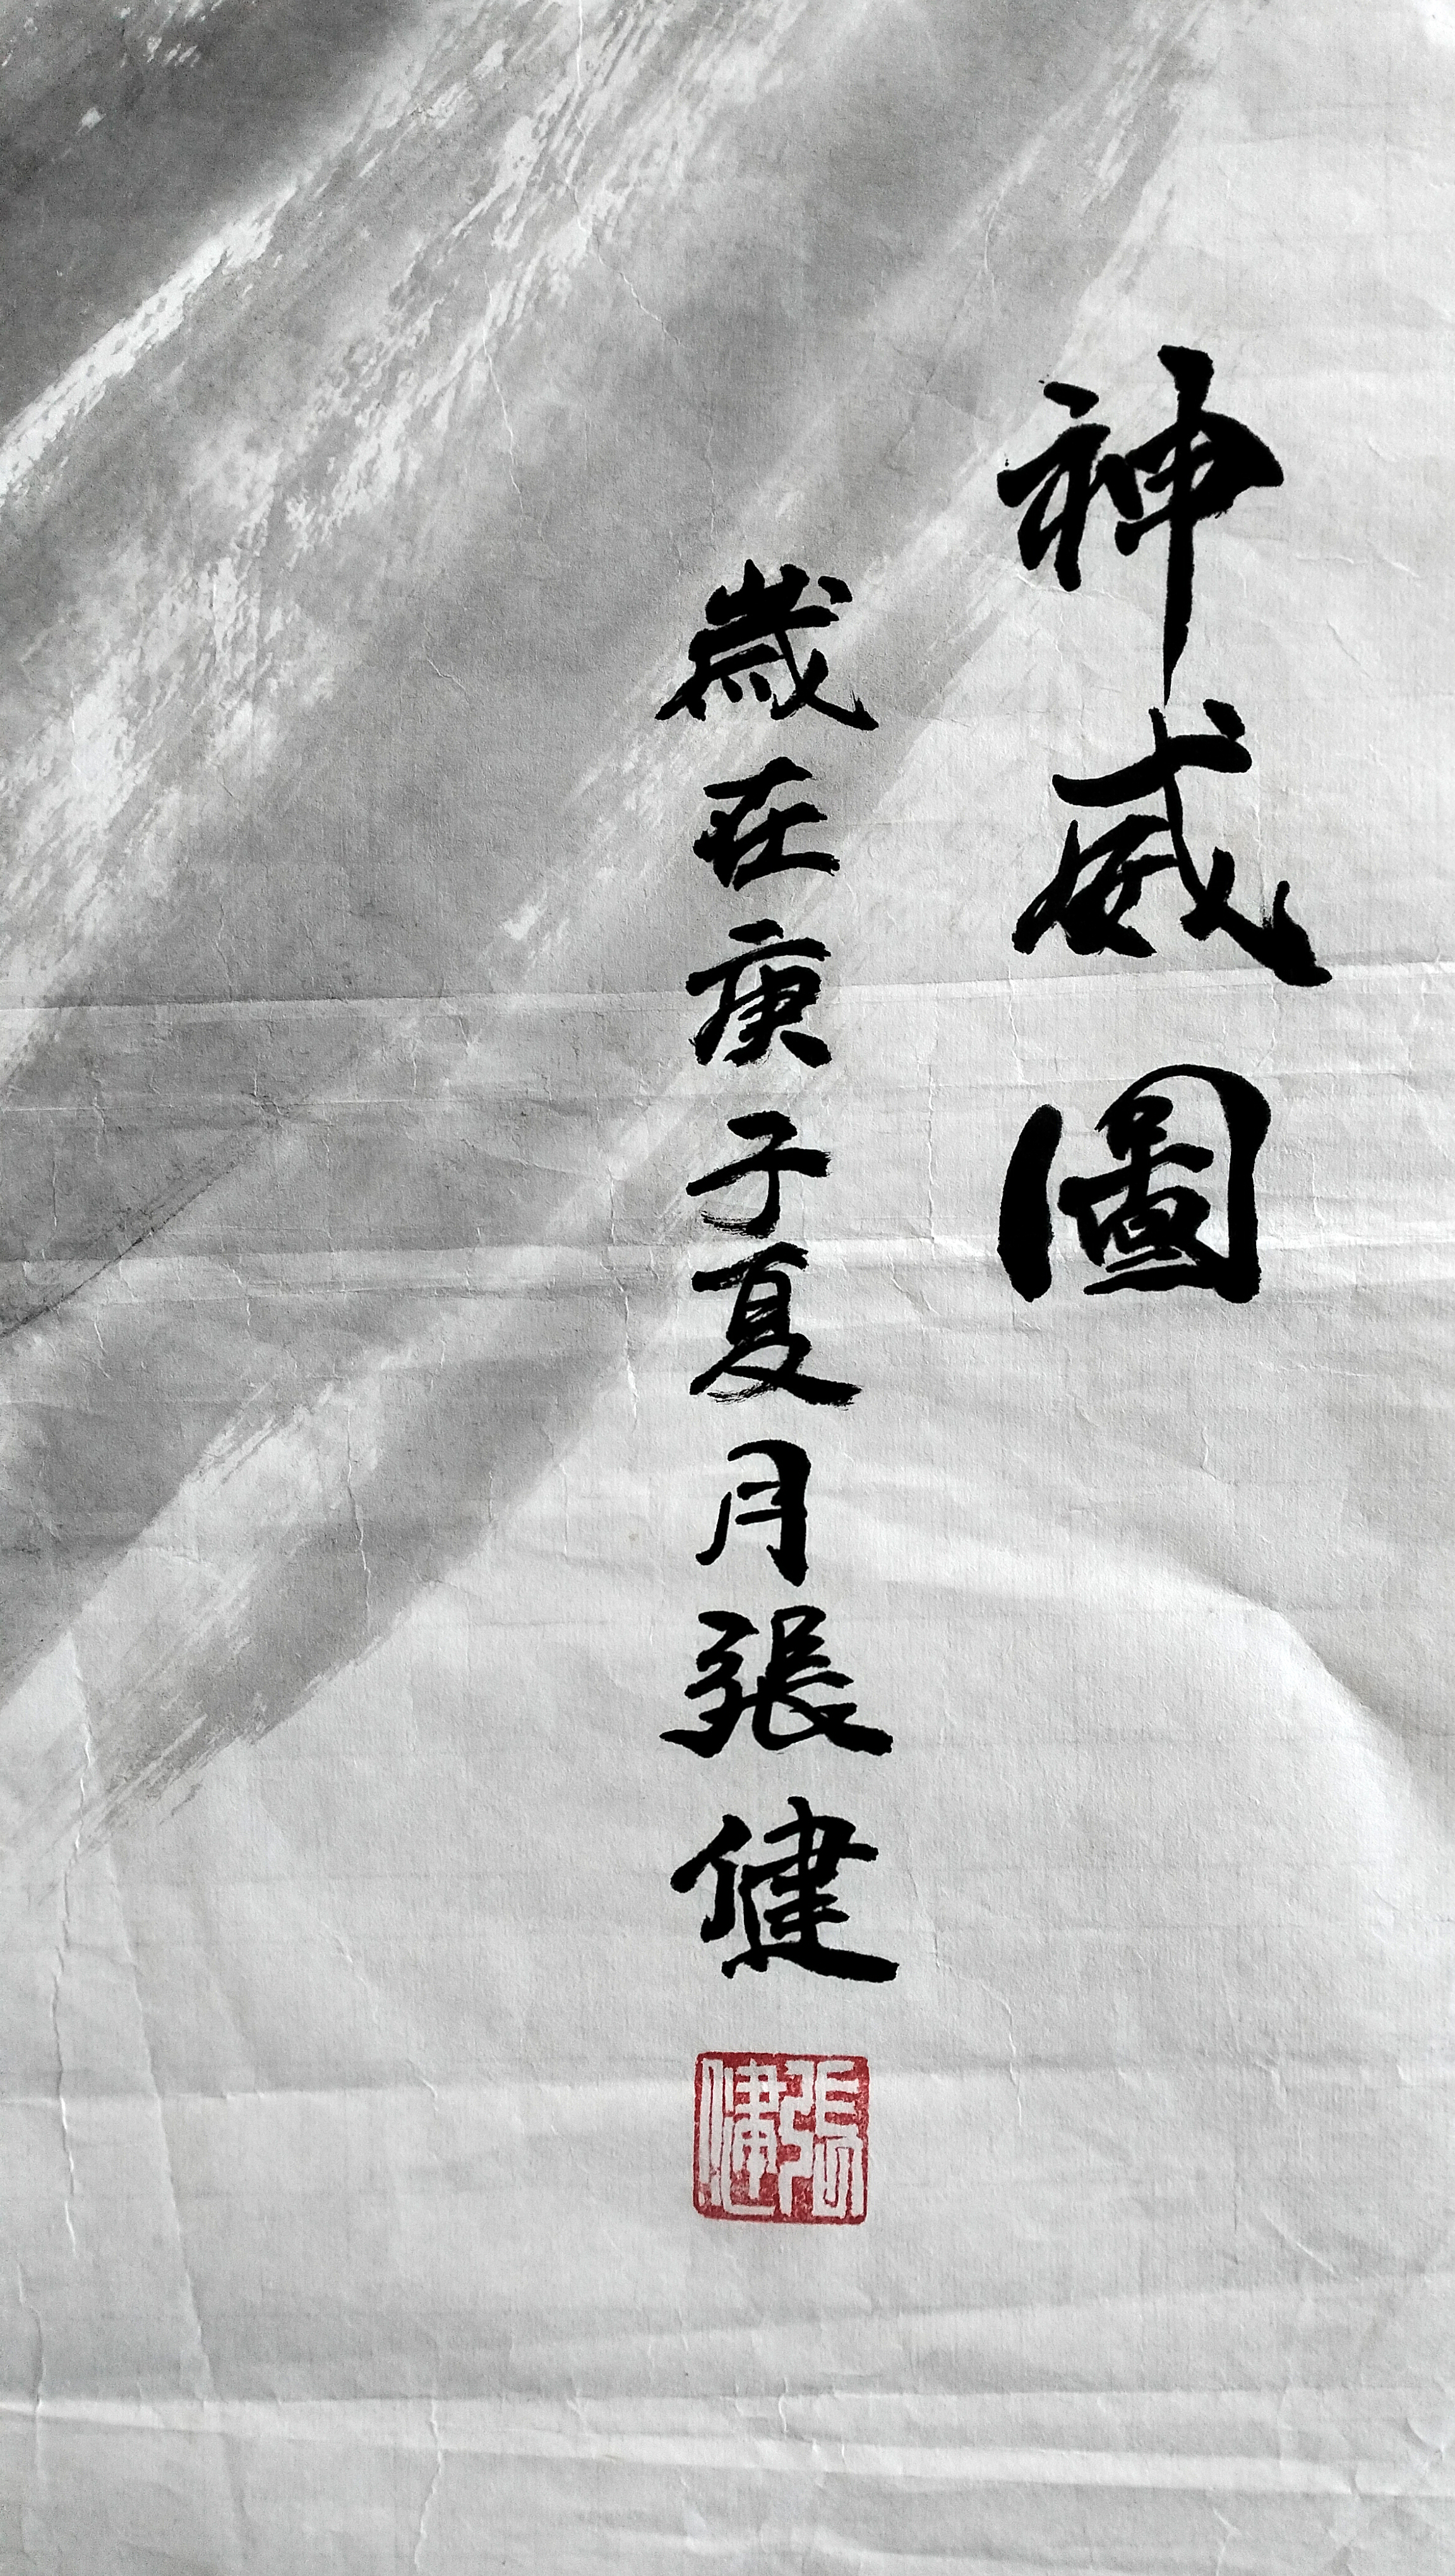 神威圖
歲在庚子夏月張健
張健